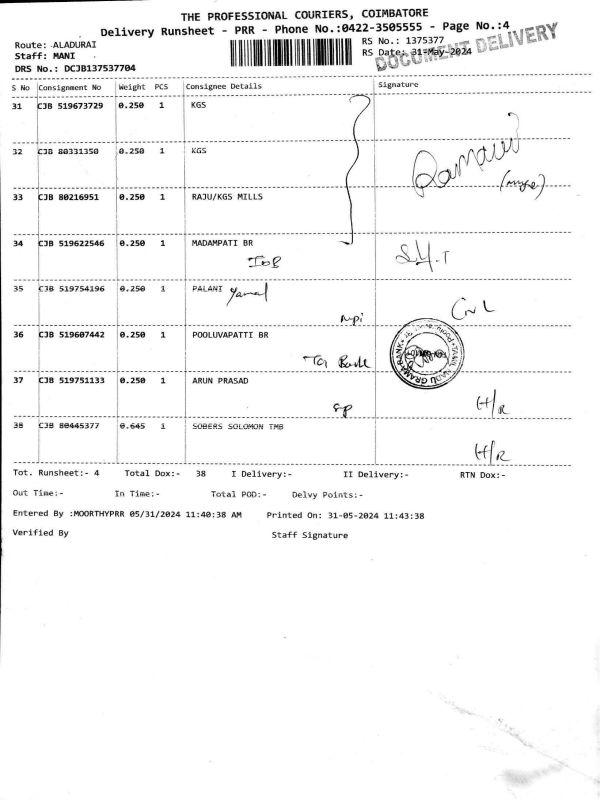 THE PROFESSIONAL COURIERS, COIMBATORE
Delivery Runsheet - PRR - Phone No.:0422-3505555 - Page No.:4
Route: ALADURAI
Staff: MANI
DRS No.: DCJB137537704
RS No.: 1375377
RS Date: 31-May-2024
DOCUMENT DELIVERY
S No Consignment No Weight PCS Consignee Details Signature
31 CJB 519673729 0.250 1 KGS
32 CJB 80331350 0.250 1 KGS
33 CJB 80216951 0.250 1 RAJU/KGS MILLS
34 CJB 519622546 0.250 1 MADAMPATI BR
IOB
35 CJB 519754196 0.250 1 PALANI
36 CJB 519607442 0.250 1 POOLUVAPATTI BR
37 CJB 519751133 0.250 1 ARUN PRASAD
H/R
38 CJB 80445377 0.645 1 SOBERS SOLOMON TMB
H/R
Tot. Runsheet:- 4 Total Dox:- 38 I Delivery:- II Delivery:- RTN Dox:-
Out Time:- In Time:- Total POD:- Delvy Points:-
Entered By :MOORTHYPRR 05/31/2024 11:40:38 AM Printed On: 31-05-2024 11:43:38
Verified By Staff Signature